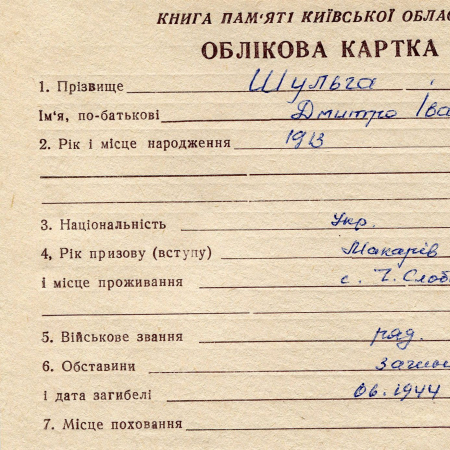 КНИГА ПАМ'ЯТІ КИЇВСЬКОЇ ОБЛАС
ОБЛІКОВА КАРТКА
1. Прізвище Шульга
Ім'я, по-батькові Дмитро Іва
2. Рік і місце народження 1913
3. Національність Укр.
4, Рік призову (вступу) Макарів
і місце проживання с. Ч. Слоб
5. Військове звання ряд.
6. Обставини загин
і дата загибелі 06.1944
7. Місце поховання